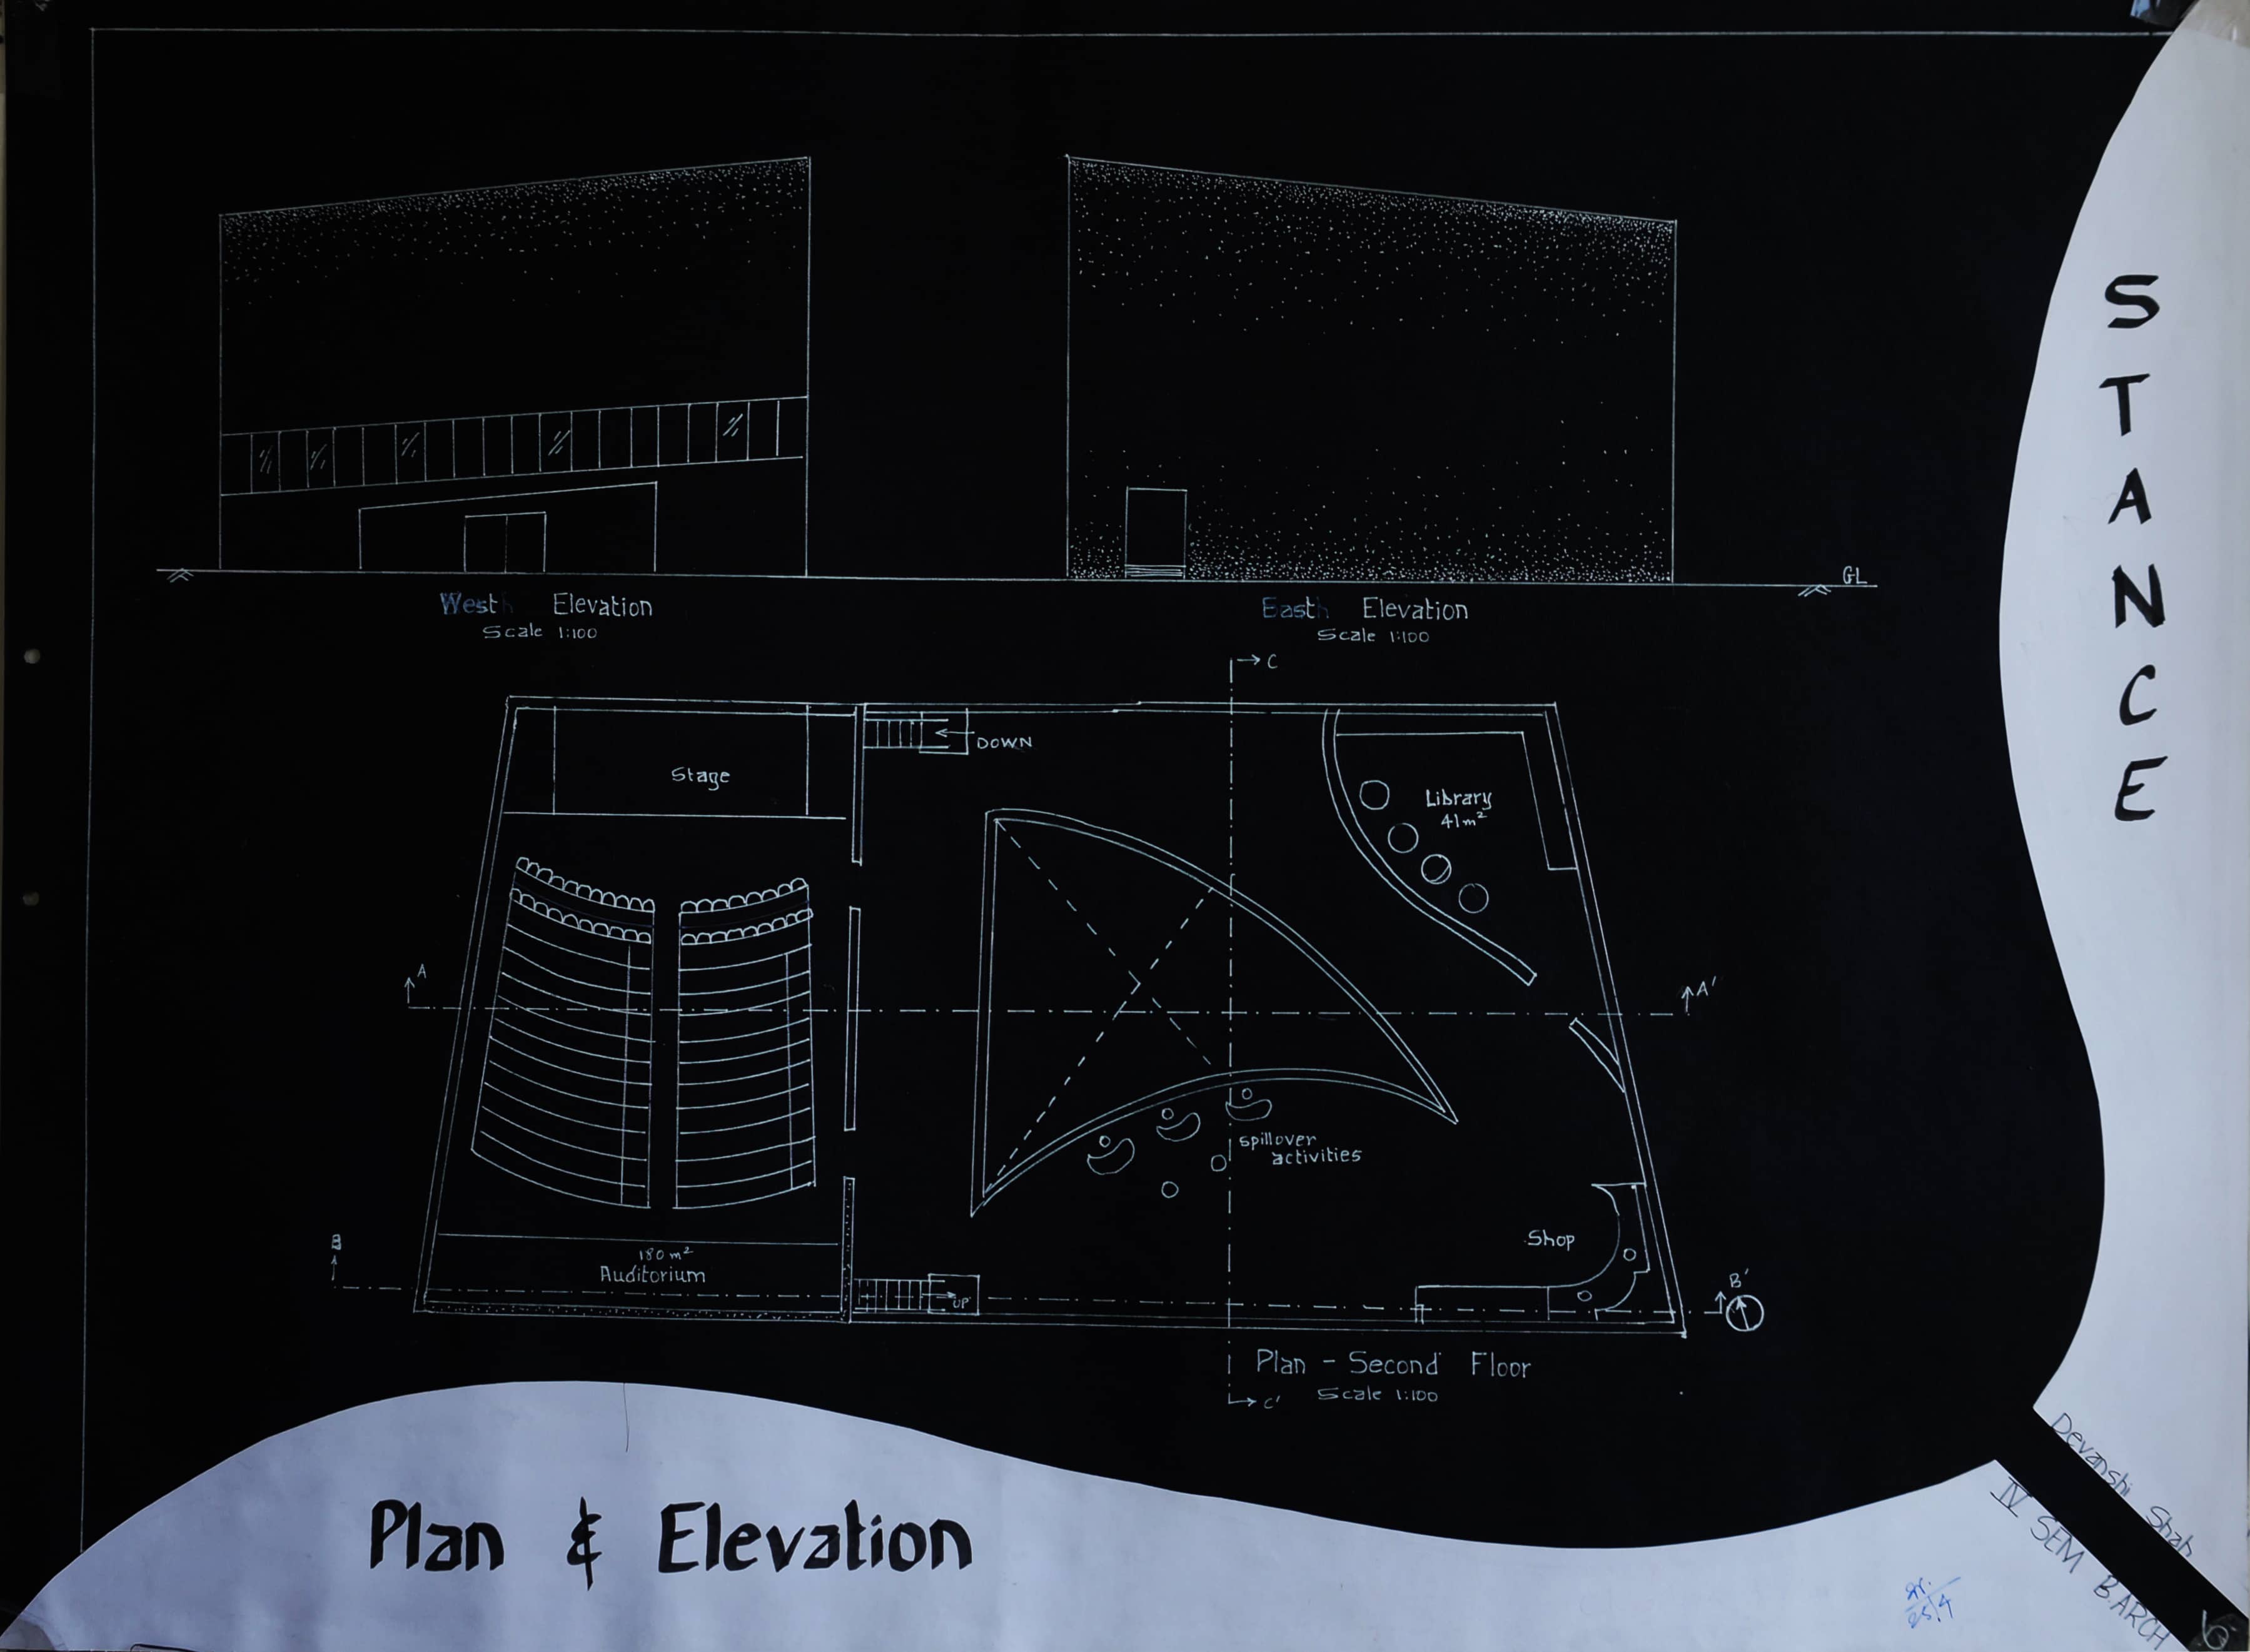 West Elevation
Scale 1:100
East Elevation
Scale 1:100
GL
C
DOWN
Stage
Library
41m²
A
A'
spillover
activities
Shop
B
180 m²
Auditorium
UP
B'
Plan - Second Floor
Scale 1:100
C'
S
T
A
N
C
E
Plan & Elevation
Devanshi Shah
IV SEM B.ARCH
25/4
6